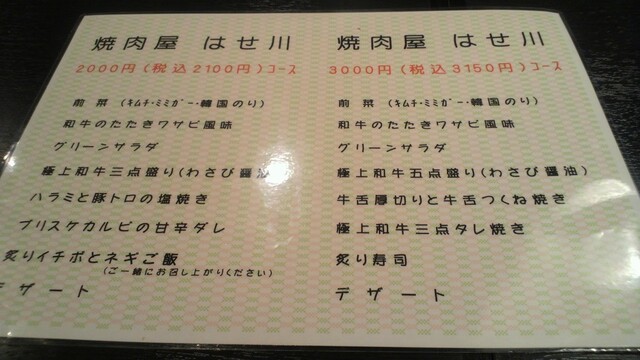 焼肉屋 はせ川
2000円(税込2100円)コース
前菜 (キムチ・ミミガー・韓国のり)
和牛のたたきワサビ風味
グリーンサラダ
極上和牛三点盛り(わさび醤油)
ハラミと豚トロの塩焼き
ブリスケカルビの甘辛ダレ
炙りイチボとネギご飯
(ご一緒にお召し上がりください)
デザート
焼肉屋 はせ川
3000円(税込3150円)コース
前菜 (キムチ・ミミガー・韓国のり)
和牛のたたきワサビ風味
グリーンサラダ
極上和牛五点盛り(わさび醤油)
牛舌厚切りと牛舌つくね焼き
極上和牛三点タレ焼き
炙り寿司
デザート